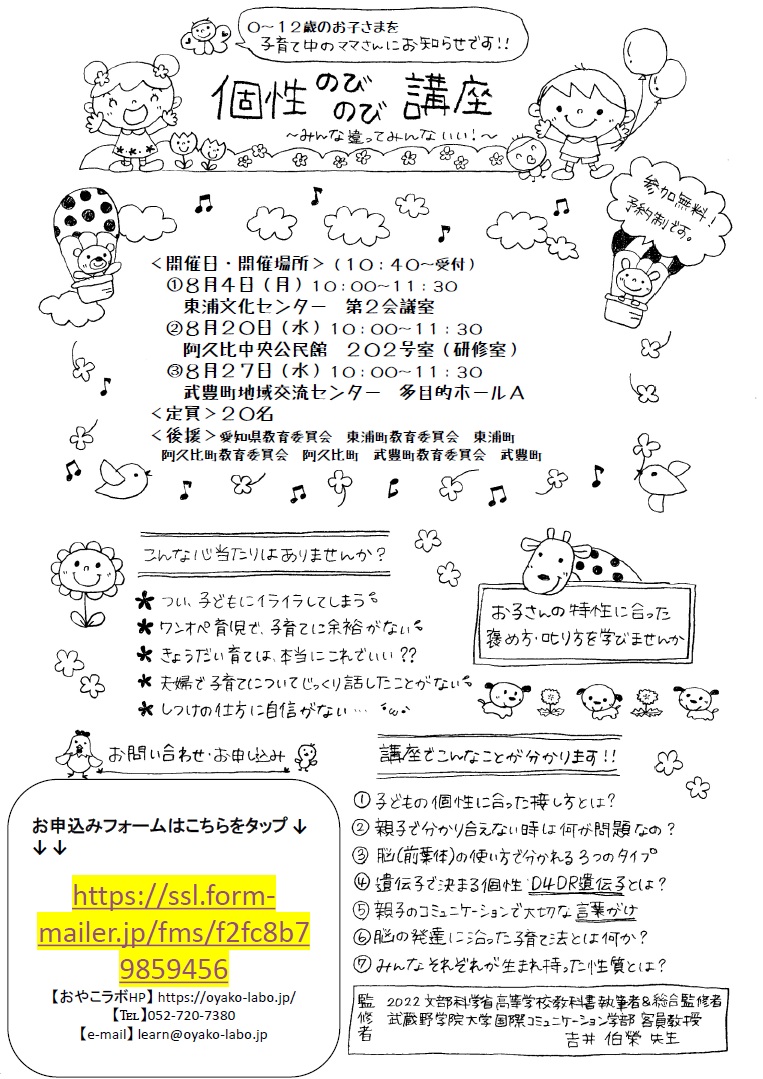 0～12歳のお子さまを
子育て中のママさんにお知らせです!!
個性 のび のび 講座
～みんな違ってみんないい!～
参加無料!
予約制です。
＜開催日・開催場所＞（10：40～受付）
①8月4日（月）10：00～11：30
東浦文化センター　第2会議室
②8月20日（水）10：00～11：30
阿久比中央公民館　202号室（研修室）
③8月27日（水）10：00～11：30
武豊町地域交流センター　多目的ホールA
＜定員＞20名
＜後援＞愛知県教育委員会　東浦町教育委員会　東浦町
阿久比町教育委員会　阿久比町　武豊町教育委員会　武豊町
こんな心当たりはありませんか？
* つい、子どもにイライラしてしまう。
* ワンオペ育児で、子育てに余裕がない。
* きょうだい育ては、本当にこれでいい??
* 夫婦で子育てについてじっくり話したことがない。
* しつけの仕方に自信がない…
お子さんの特性に合った
褒め方・叱り方を学びませんか
お問い合わせ・お申し込み
お申込みフォームはこちらをタップ↓
↓↓
https://ssl.form-
mailer.jp/fms/f2fc8b7
9859456
【おやこラボHP】https://oyako-labo.jp/
【℡】052-720-7380
【e-mail】learn@oyako-labo.jp
講座でこんなことが分かります!!
①子どもの個性に合った接し方とは？
②親子で分かり合えない時は何が問題なの？
③脳(前葉体)の使い方で分かれる3つのタイプ
④遺伝子で決まる個性 D4DR遺伝子とは？
⑤親子のコミュニケーションで大切な言葉がけ
⑥脳の発達に沿った子育て法とは何か？
⑦みんなそれぞれが生まれ持った性質とは？
監修者
2022文部科学省高等学校教科書執筆者&総合監修者
武蔵野学院大学国際コミュニケーション学部 客員教授
吉井 伯榮 先生